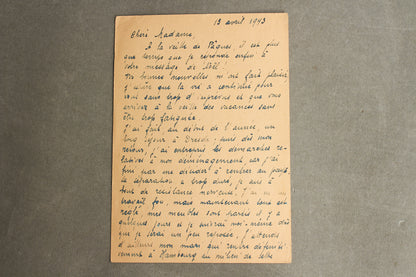 13 avril 1943
Chère Madame,
À la veille de Pâques il est plus
que temps que je réponde enfin à
votre message de Noël !
Vos bonnes nouvelles m'ont fait plaisir,
j'espère que la vie a continué pour
vous sans trop d'imprévus et que vous
arrivez à la veille des vacances sans
être trop fatiguée.
J'ai fait au début de l'année un
long séjour à Dresde - puis dès mon
retour, j'ai entrepris les démarches re-
latives à mon déménagement car j'ai
fini par me décider à rentrer au pays,
la séparation a trop duré, je suis à
bout de résistance nerveuse. J'ai eu un
travail fou, mais maintenant tout est
réglé, mes meubles sont partis il y a
quelques jours et je suivrai moi-même dès
que je serai un peu reposée. J'attends
d'ailleurs mon mari qui rentre définiti-
vement à Hambourg au milieu de cette